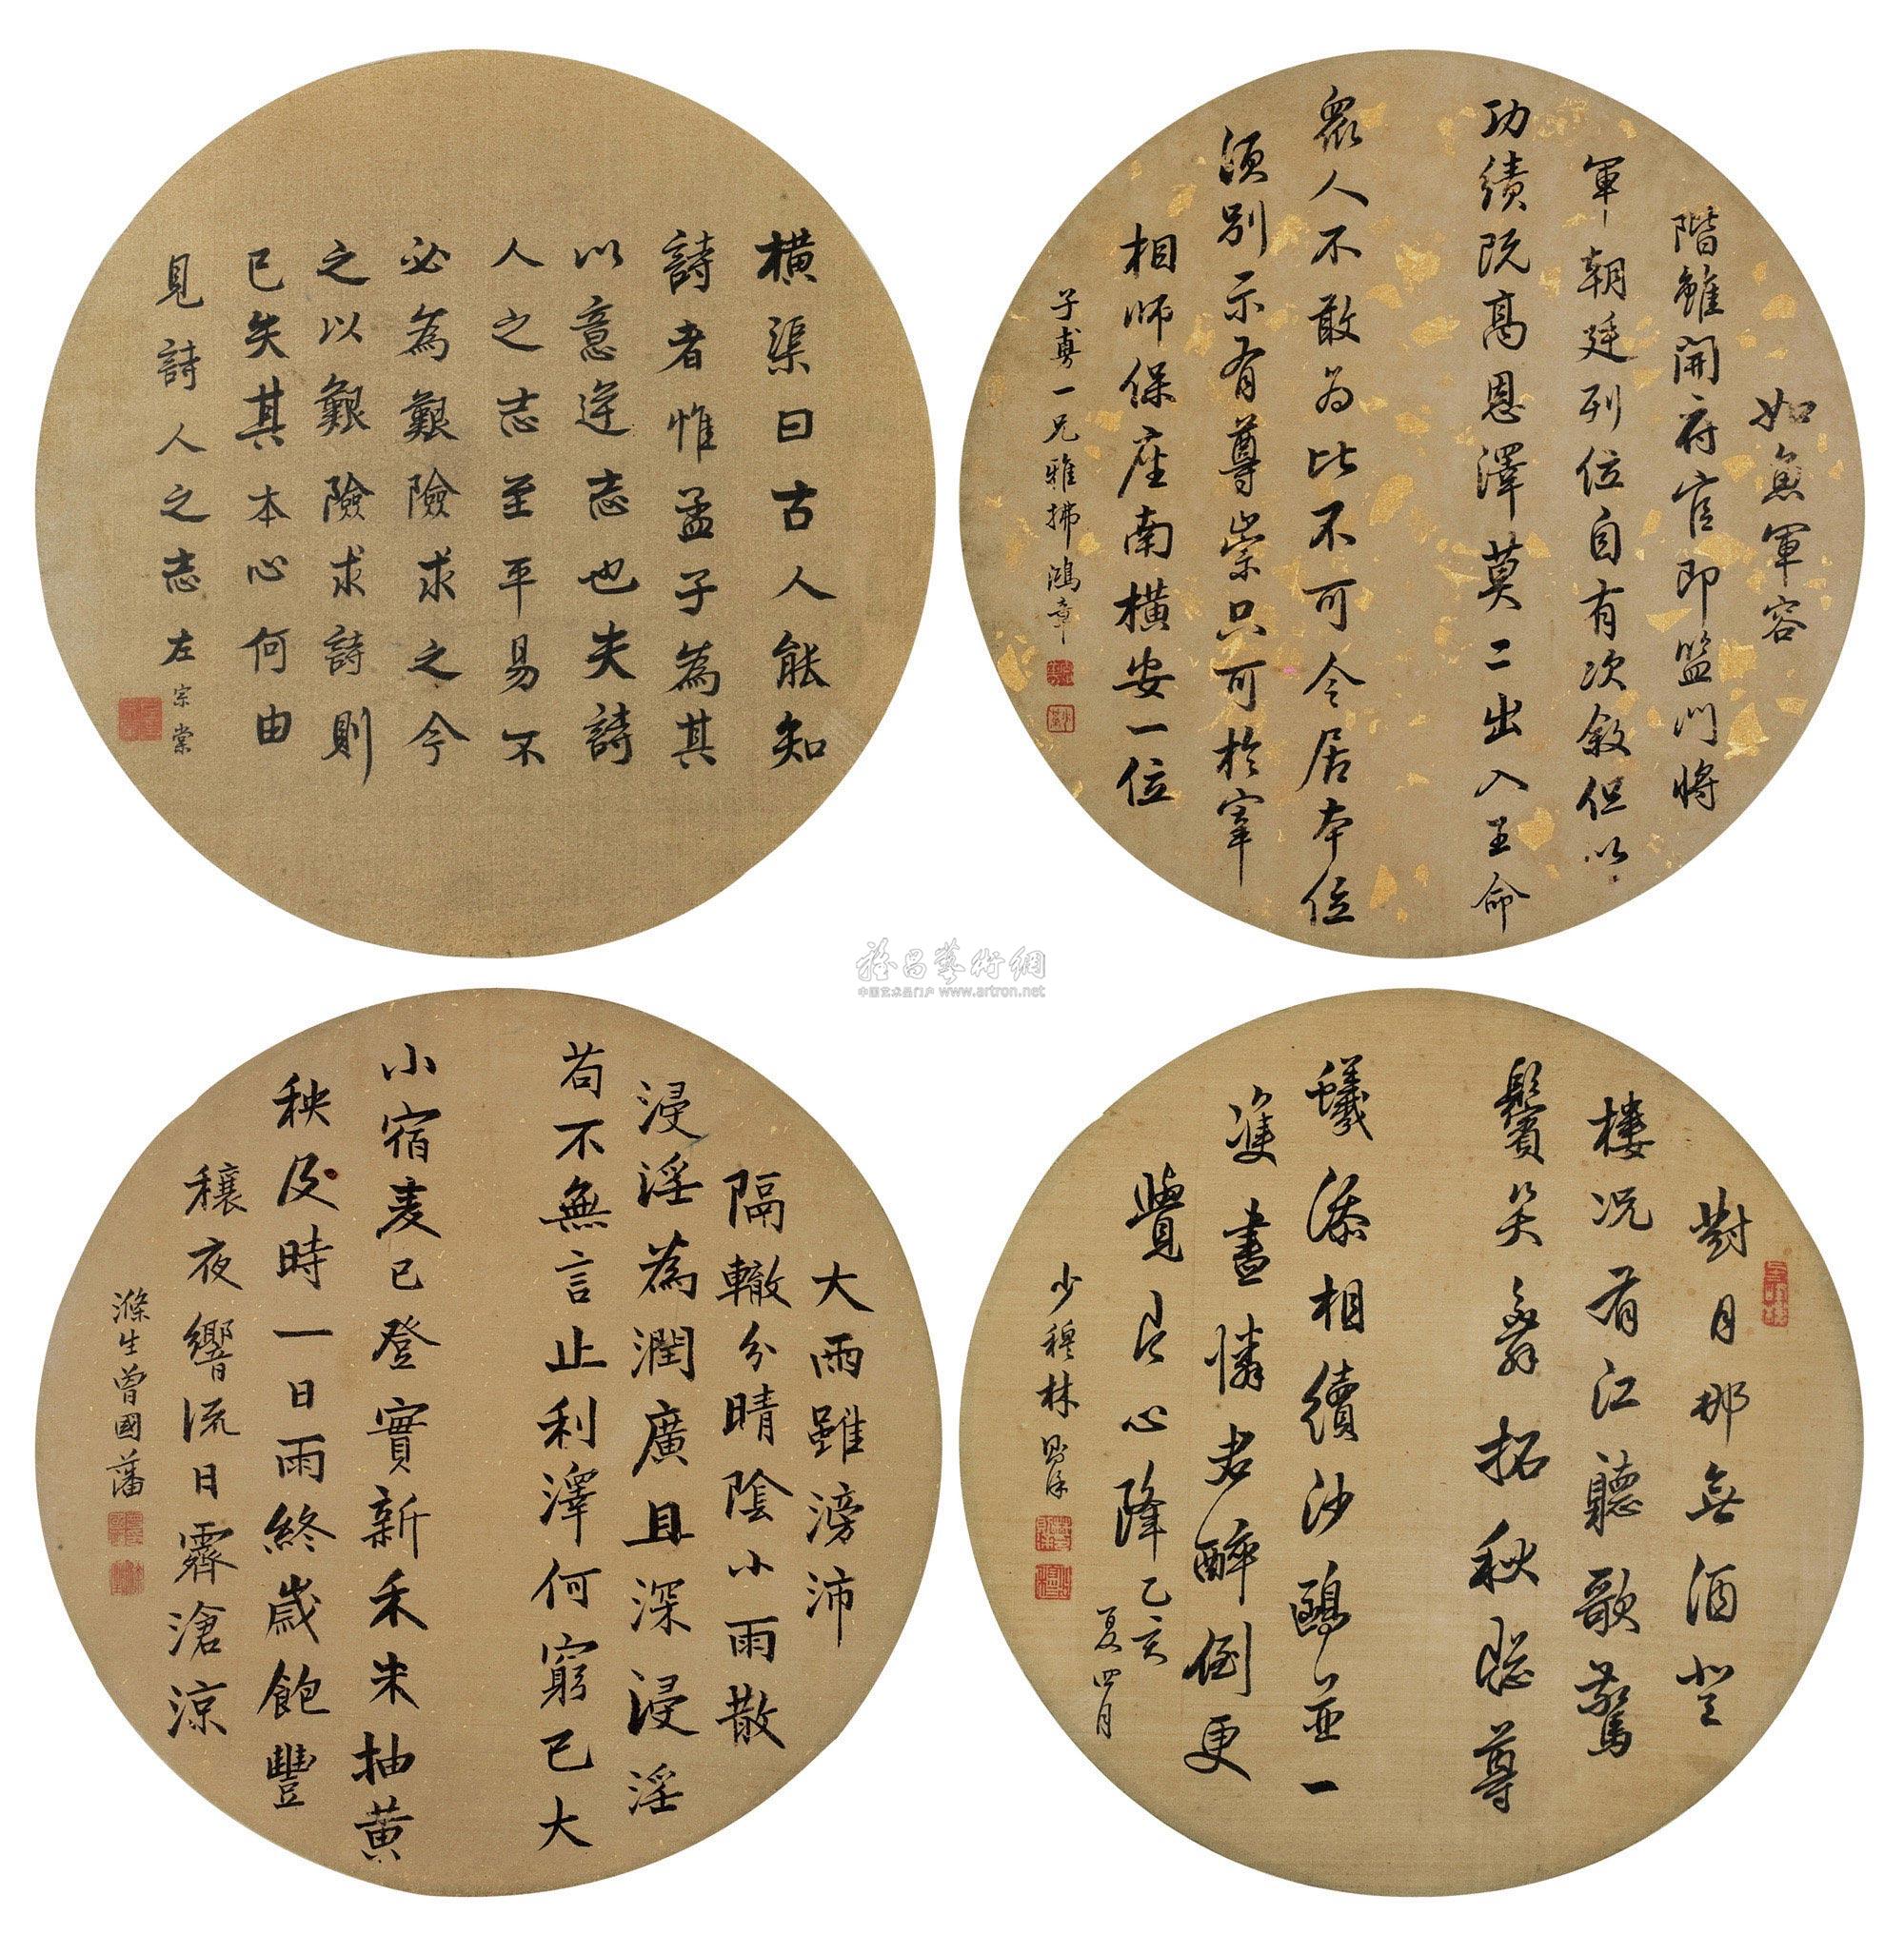 如魚軍容
階雖開府官即監門將
軍朝廷列位自有次敘但以
功績既高恩澤莫二出入王命
眾人不敢為比不可令居本位
須別示有尊崇只可於宰
相師保座南橫安一位
子尃一兄雅拂鴻章
橫渠曰古人能知
詩者惟孟子為其
以意逆志也夫詩
人之志至平易不
必為艱險求之今
之以艱險求詩則
已失其本心何由
見詩人之志左宗棠
雅昌藝術網
中国艺术品门户 www.artron.net
對月那無酒登
樓況有江聽歌驚
鬢笑舞拓秋牕尊
蟻添相續沙鷗並一
雙盡憐君醉倒更
覺片心降乙亥
夏四月
少穆林則徐
大雨雖滂沛
隔轍分晴陰小雨散
浸淫為潤廣且深浸淫
苟不無言止利澤何窮已大
小宿麦已登實新禾未抽黄
秧及時一日雨終歲飽豐
穰夜響流日霽滄涼
滌生曾國藩